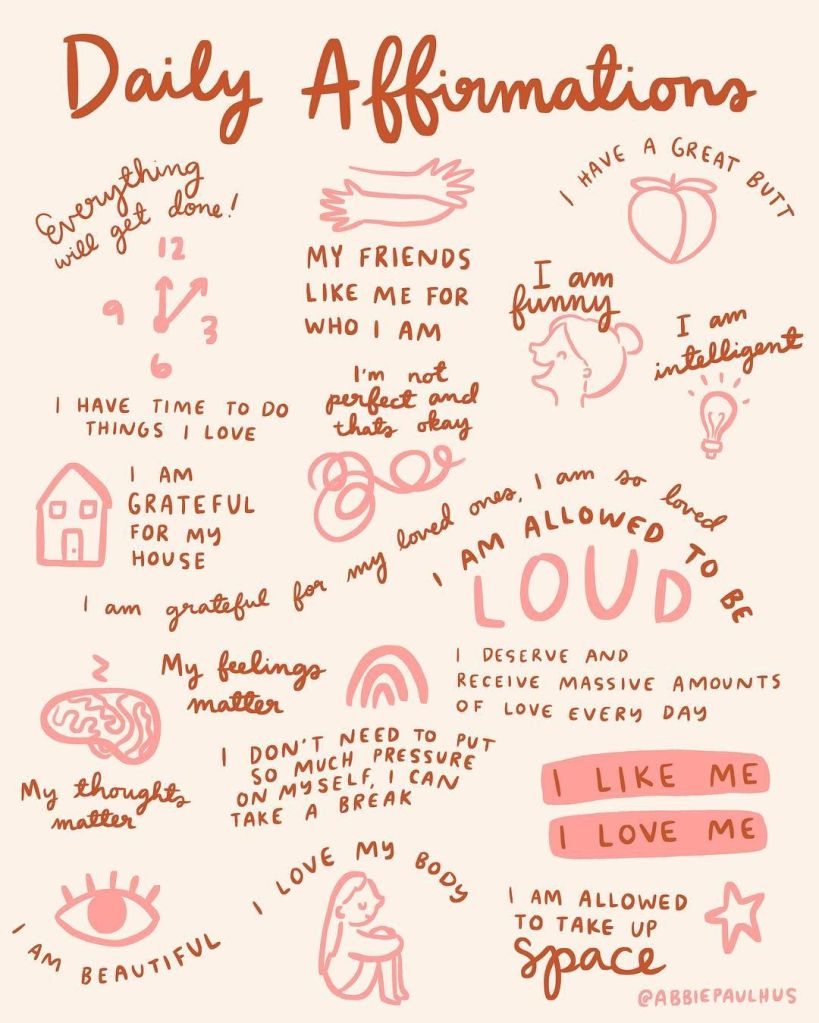 Daily Affirmations
Everything
will get done!
12
9
3
6
MY FRIENDS
LIKE ME FOR
WHO I AM
I HAVE A GREAT BUTT
I am
funny
I am
intelligent
I HAVE TIME TO DO
THINGS I LOVE
I'm not
perfect and
thats okay
I AM
GRATEFUL
FOR MY
HOUSE
I am grateful for my loved ones, I am so loved
I AM ALLOWED TO BE
LOUD
My feelings
matter
I DESERVE AND
RECEIVE MASSIVE AMOUNTS
OF LOVE EVERY DAY
My thoughts
matter
I DON'T NEED TO PUT
SO MUCH PRESSURE
ON MYSELF, I CAN
TAKE A BREAK
I LIKE ME
I LOVE ME
I AM BEAUTIFUL
I LOVE MY BODY
I AM ALLOWED
TO TAKE UP
space
@ABBIEPAULHUS